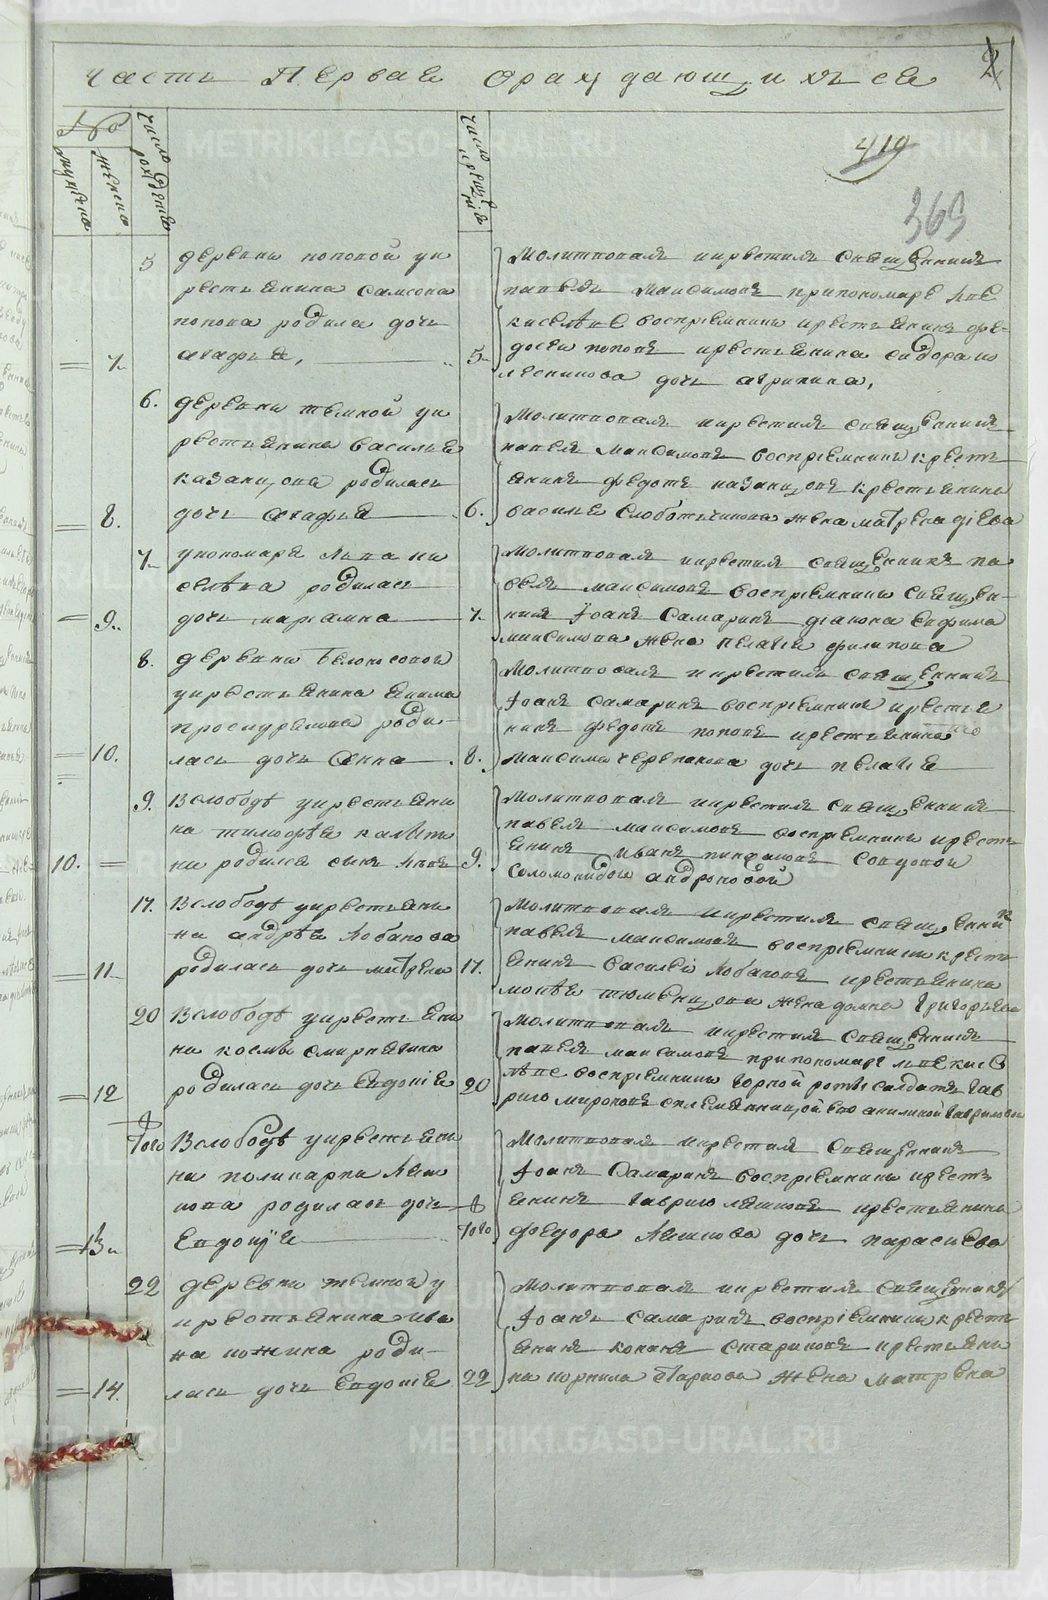 Часть Первая ораждающихъся
2
419
369
№
мужеска
женска
число рождения
число крещения
5 деревни поповой у ки
рестьянина самсона
попова родила дочь
7 агафья, 5
Молитвовалъ икрестилъ священникъ
павелъ Максимовъ припономаре
киселѣве восприемники крестьянинъ фе-
досеи поповъ крестьянина сидора ко
лесникова дочь акилина,
6. деревни темной ук
рестьянина василья
казанцова родилась
8. дочь агафья 6.
Молитвовалъ икрестилъ священникъ
павелъ максимовъ восприемники кресть
янинъ федотъ казанцовъ крестьянина
василья слоботчикова жена матрена
7 упономаря льва ки
селѣва родилась
9. дочь мариамна 7.
Молитвовалъ икрестилъ священникъ па
велъ максимовъ восприемники священ-
никъ Іоанъ Самаринъ діакона ефима
максимова жена пелагея филипова
8. деревни белоносовой
укрестьянина якима
проскурекова роди-
10. лась дочь Анна 8.
Молитвовалъ икрестилъ священникъ
Іоанъ самаринъ восприемники крестья
нинъ федотъ поповъ крестьянина
максима черепанова дочь пелагея
9. Вслободѣ укрестьяни
на тимофѣя
10. на родился сынъ 9.
Молитвовалъ икрестилъ священникъ
павелъ максимовъ восприемники кресть
янинъ иванъ совдовой
Соломонидою андроновой
17. Вслободѣ укрестьяни
на андрѣя Лобанова
11 родилась дочь матрена 17.
Молитвовалъ икрестилъ священникъ
павелъ максимовъ восприемники кресть
янинъ василей Лобановъ крестьянина
мокѣя тюменцова жена домна Григорьева
20 Вслободѣ укрестьяни
на космы смирнягина
12 родилась дочь Евдокія 20
Молитвовалъ икрестилъ священникъ
павелъ максимовъ припономаре киc
ѣве восприемники Горной роты солдатъ Гав
рило мироновъ
Того Вслободѣ укрестьяни
на поликарпа Ляш
кова родилась дочь Того
13 Евдокія
Молитвовалъ икрестилъ священникъ
Іоанъ Самаринъ восприемники кресть
янинъ Гаврило ляшковъ крестьянина
федора Ляшкова дочь парасковья
22 деревни темной у
крестьянина ива
на кожина роди-
14. лась дочь Евдокія 22
Молитвовалъ икрестилъ священникъ
Іоанъ самаринъ восприемники кресть
янинъ конанъ стариковъ крестьяни
на корнила жена матрена